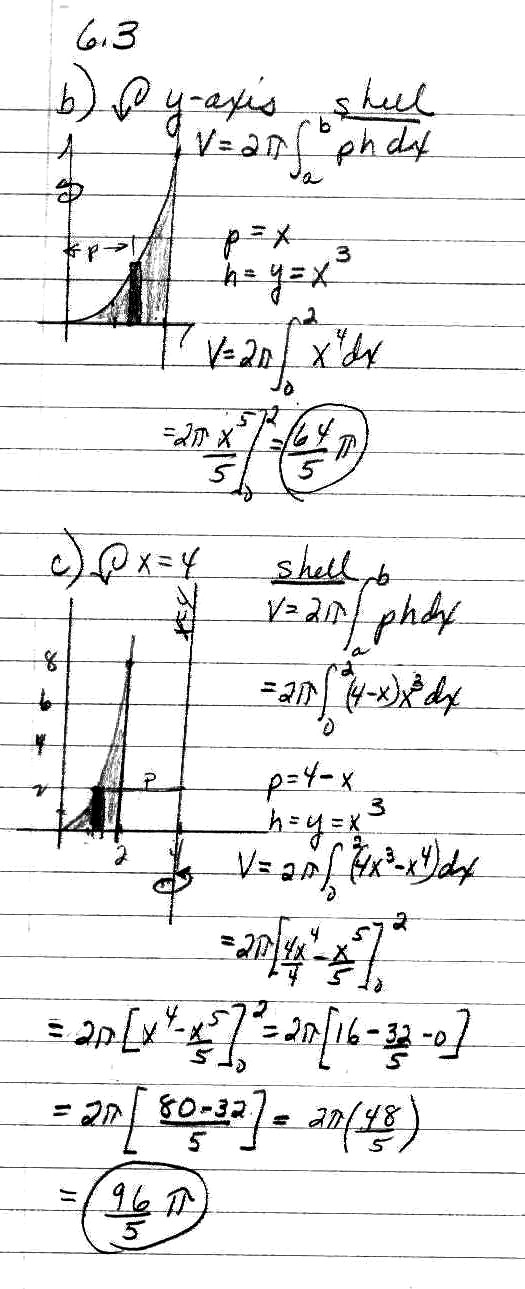 6.3
b) y-axis shell
V = 2π∫ₐᵇ ph dx
p
p = x
h = y = x³
V = 2π∫₀² x⁴ dx
= 2π x⁵/5]₀² = 64/5 π
c) x = 4 shell
x=4
V = 2π∫ₐᵇ ph dx
8
6
4
2
p
2
4
= 2π∫₀² (4-x)x³ dx
p = 4 - x
h = y = x³
V = 2π∫₀² (4x³ - x⁴) dx
= 2π[4x⁴/4 - x⁵/5]₀²
= 2π[x⁴ - x⁵/5]₀² = 2π[16 - 32/5 - 0]
= 2π[(80-32)/5] = 2π(48/5)
= 96/5 π